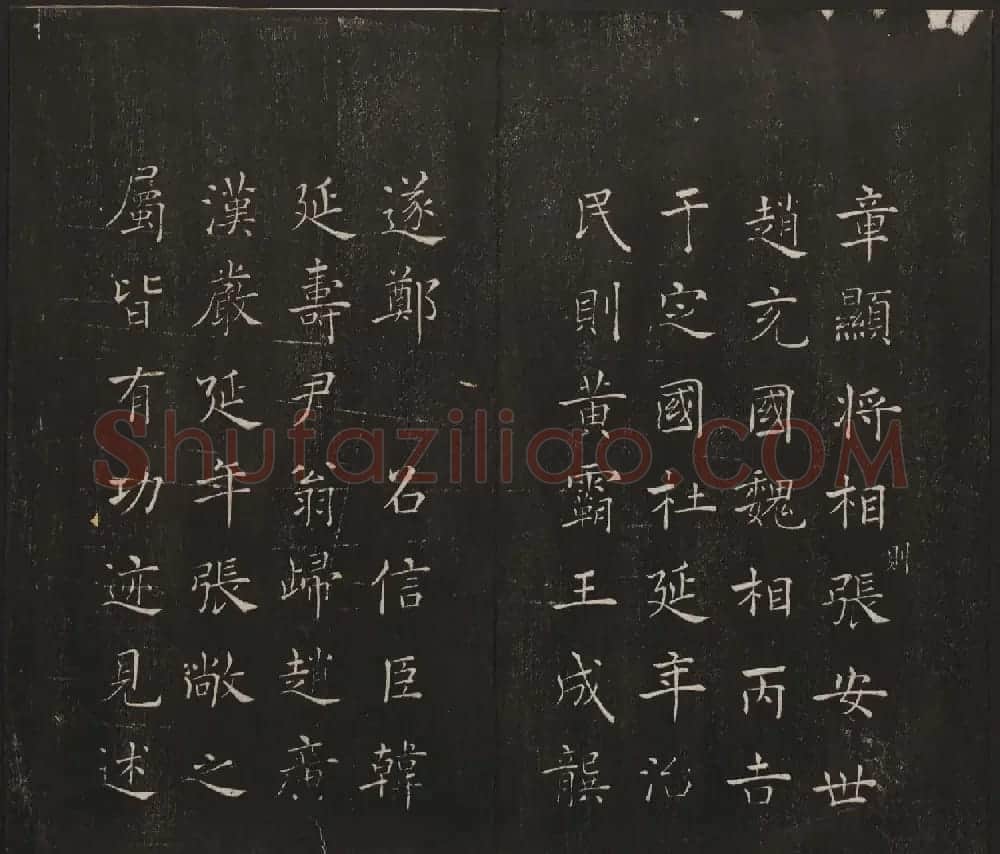 章顯將相張安世
則
趙充國魏相丙吉
于定國杜延年治
民則黃霸王成龔
遂鄭 召信臣韓
延壽尹翁歸趙廣
漢嚴延年張敞之
屬皆有功迹見述
Shufaziliao.COM